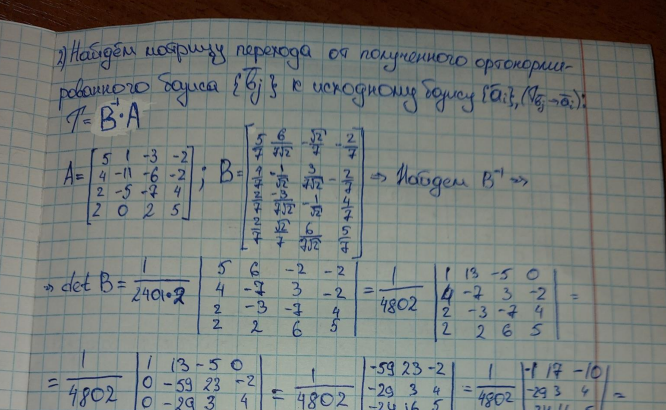 2) Найдём матрицу перехода от полученного ортонорми-
рованного базиса {b̄j} к исходному базису {āi}, (T b̄j→āi):
T = B⁻¹·A
A = [5 1 -3 -2; 4 -11 -6 -2; 2 -5 -7 4; 2 0 2 5]; B = [5/7 6/7√2 -√2/7 -2/7; 4/7 -1/√2 3/7√2 -2/7; 2/7 -3/7√2 -1/√2 4/7; 2/7 √2/7 6/7√2 5/7] ⇒ Найдем B⁻¹ ⇒
⇒ det B = 1/2401·2 |5 6 -2 -2; 4 -7 3 -2; 2 -3 -7 4; 2 2 6 5| = 1/4802 |1 13 -5 0; 4 -7 3 -2; 2 -3 -7 4; 2 2 6 5| =
= 1/4802 |1 13 -5 0; 0 -59 23 -2; 0 -29 3 4| = 1/4802 |-59 23 -2; -29 3 4; -24 16 5| = 1/4802 |-1 17 -10; -29 3 4| =